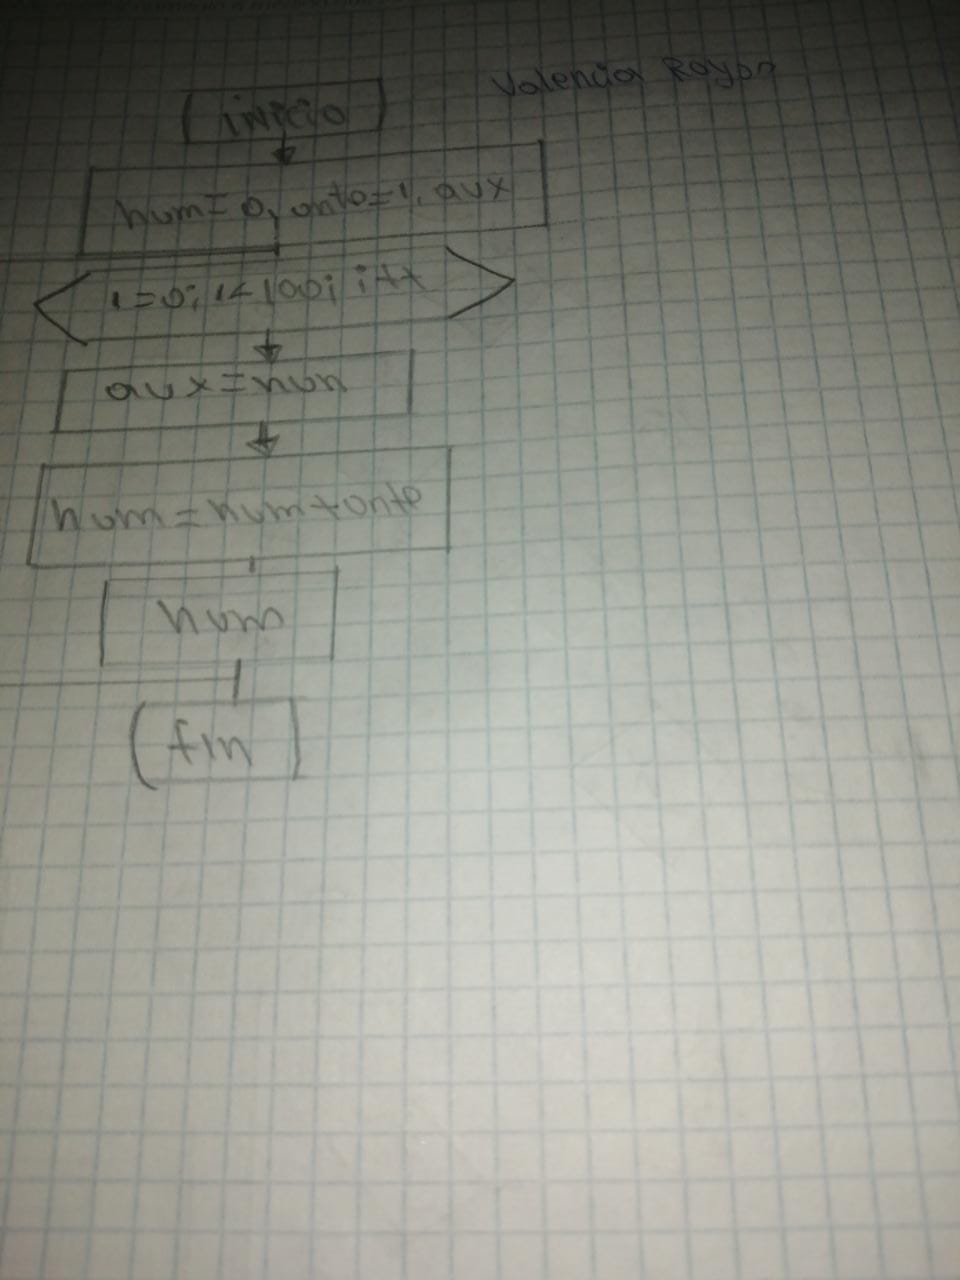 Valencia Rayon
inicio
num=0, ante=1, aux
i=0; i<100; i++
aux=num
num=num+ante
num
fin